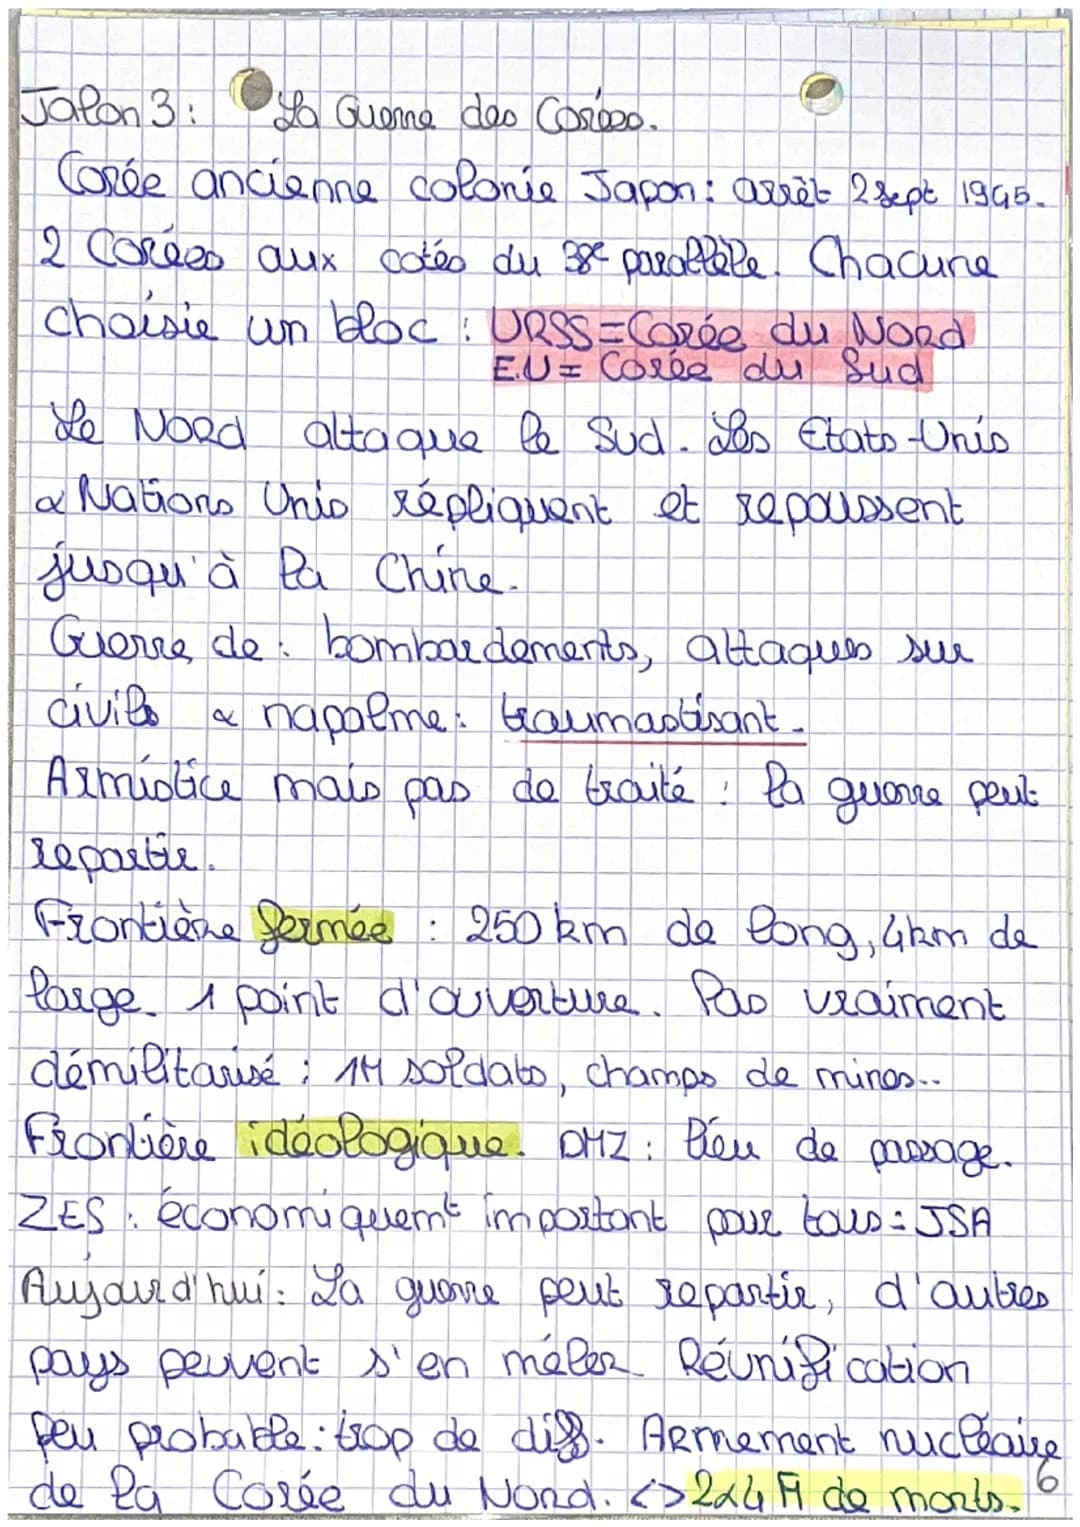 Jalon 3: La Guerre des Corées.
Corée ancienne colonie Japon: arrêt 2 sept 1945.
2 Corées aux cotés du 38e parallèle. Chacune
choisie un bloc : URSS=Corée du Nord
E.U= Corée du Sud
Le Nord attaque le Sud. Les Etats-Unis
& Nations Unis répliquent et repoussent
jusqu'à la Chine.
Guerre de : bombardements, attaques sur
civils & napalme: traumastisant.
Armistice mais pas de traité : la guerre peut
repartir.
Frontière fermée : 250 km de long, 4km de
large. 1 point d'ouverture. Pas vraiment
démilitarisé ; 1M soldats, champs de mines..
Frontière idéologique. DMZ : lieu de passage.
ZES : économiquemt important pour tous = JSA
Aujourd'hui : La guerre peut repartir, d'autres
pays peuvent s'en mêler Réunification
peu probable : trop de diff. Armement nucléaire
de la Corée du Nord. <> 2à4 M de morts.
6